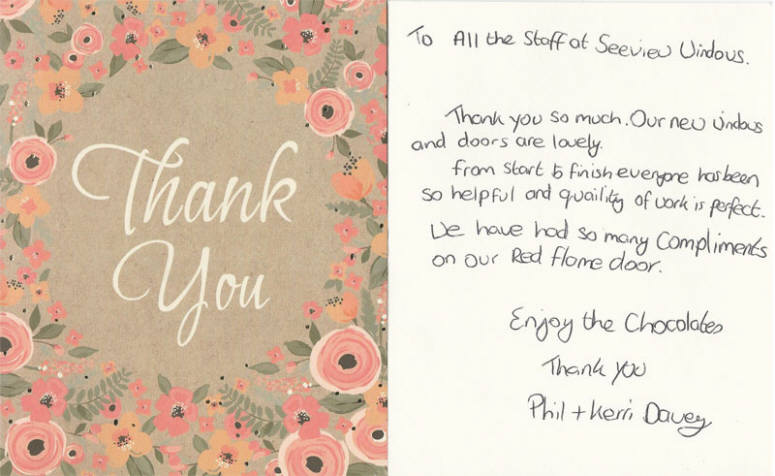 Thank
You
To All the Staff at Seeview Windows.
Thank you so much. Our new windows
and doors are lovely.
From Start to finish everyone has been
so helpful and quaility of work is perfect.
We have had so many Compliments
on our Red flame door.
Enjoy the Chocolates
Thank you
Phil + Kerri Davey